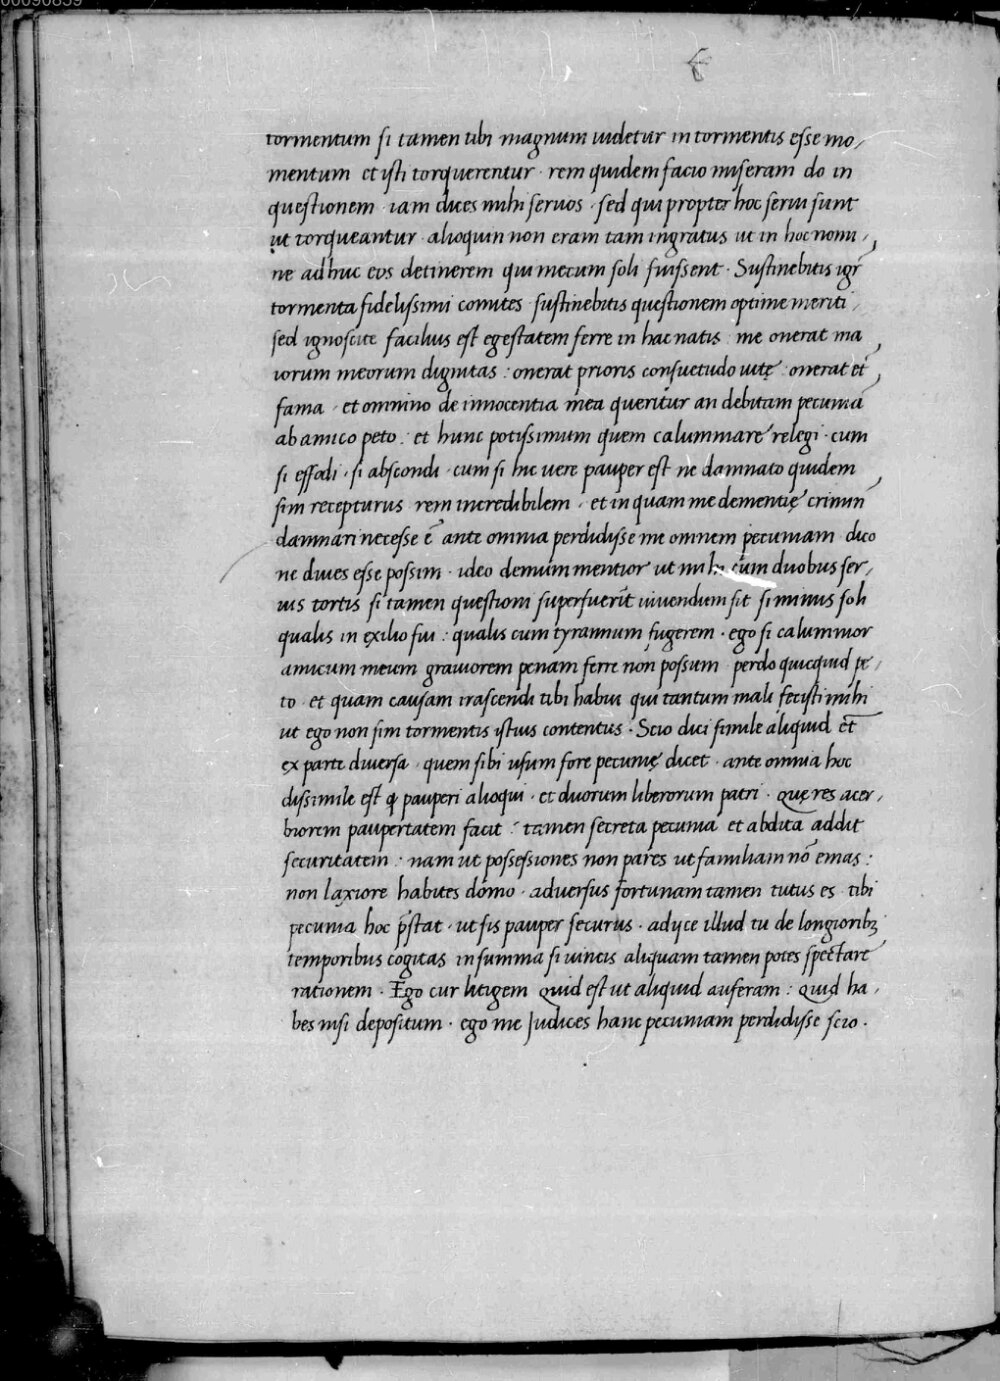 00090859
tormentum si tamen tibi magnum uidetur in tormentis esse mo,
mentum et isti torquerentur · rem quidem facio miseram do in
questionem · iam dices mihi seruos · sed qui propter hoc serui sunt
ut torqueantur · alioquin non eram tam ingratus ut in hoc nomi,
ne adhuc eos detinerem qui mecum soli fuissent · Sustinebitis igr̄
tormenta fidelissimi comites · sustinebitis questionem optime meriti
sed ignoscite facilius est egestatem ferre in hac natis · me onerat ma,
iorum meorum dignitas : onerat prioris consuetudo uitę : onerat et,
fama · et omnino de innocentia mea queritur an debitam pecuniā
ab amico peto : et hunc potissimum quem calumniare relegi · cum
si effodi · si abscondi · cum si hic uere pauper est ne damnato quidem
sim recepturus rem incredibilem · et in quam me dementię crimin,
damnari necesse ē ante omnia perdidisse me omnem pecuniam dico
ne diues esse possim · ideo demum mentior ut mihi cum duobus ser,
uis tortis si tamen questioni superfuerīt uiuendum sit si minus soli
qualis in exilio fui : qualis cum tyrannum fugerem · ego si calumnior
amicum meum grauiorem penam ferre non possum perdo quicquid pe,
to et quam causam irascendi tibi habui qui tantum mali fecisti mihi
ut ego non sim tormentis istius contentus · Scio dici simile aliquid et
ex parte diuersa · quem sibi usum fore pecunię dicet · ante omnia hoc
dissimile est q̄ pauperi alioqui · et duorum liberorum patri · Quę res acer,
biorem paupertatem facit : tamen secreta pecunia et abdita addit
securitatem : nam ut possessiones non pares ut familiam nō emas :
non laxiore habites domo · aduersus fortunam tamen tutus es tibi
pecunia hoc p̄stat · ut sis pauper securus · adijce illud tu de longiorib;
temporibus cogitas in summa si uincis aliquam tamen potes spectare
rationem · Ego cur litigem quid est ut aliquid auferam : Quid ha,
bes nisi depositum · ego me Judices hanc pecuniam perdidisse scio ·